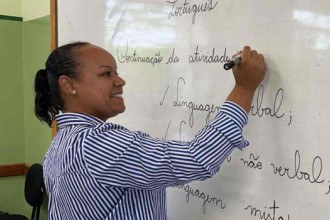 Português
Continuação da atividade
✓ Linguagem verbal;
✓ Linguagem não verbal;
✓ Linguagem mista